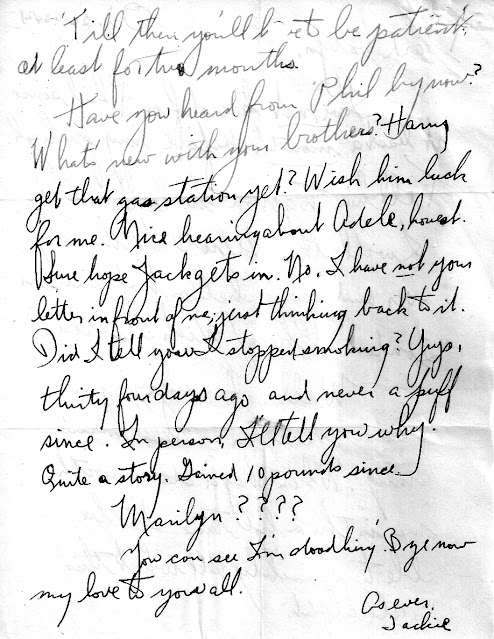 Till then you'll be patient.
at least for two months.
Have you heard from Phil by now?
What's new with your brothers? Harry
get that gas station yet? Wish him luck
for me. Nice hearing about Adele, honest.
Sure hope Jack gets in. No, I have not your
letter in front of me, just thinking back to it.
Did I tell you I stopped smoking? Yup,
thirty four days ago and never a puff
since. In person, I'll tell you why.
Quite a story. Gained 10 pounds since
Marilyn ????
You can see I'm doodling. Bye now
my love to you all.
As ever,
Jackie